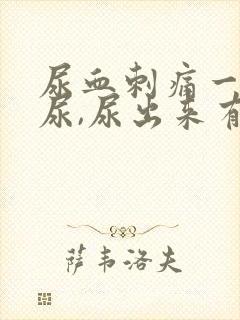 尿血刺痛一
尿,尿出来有
萨韦洛夫